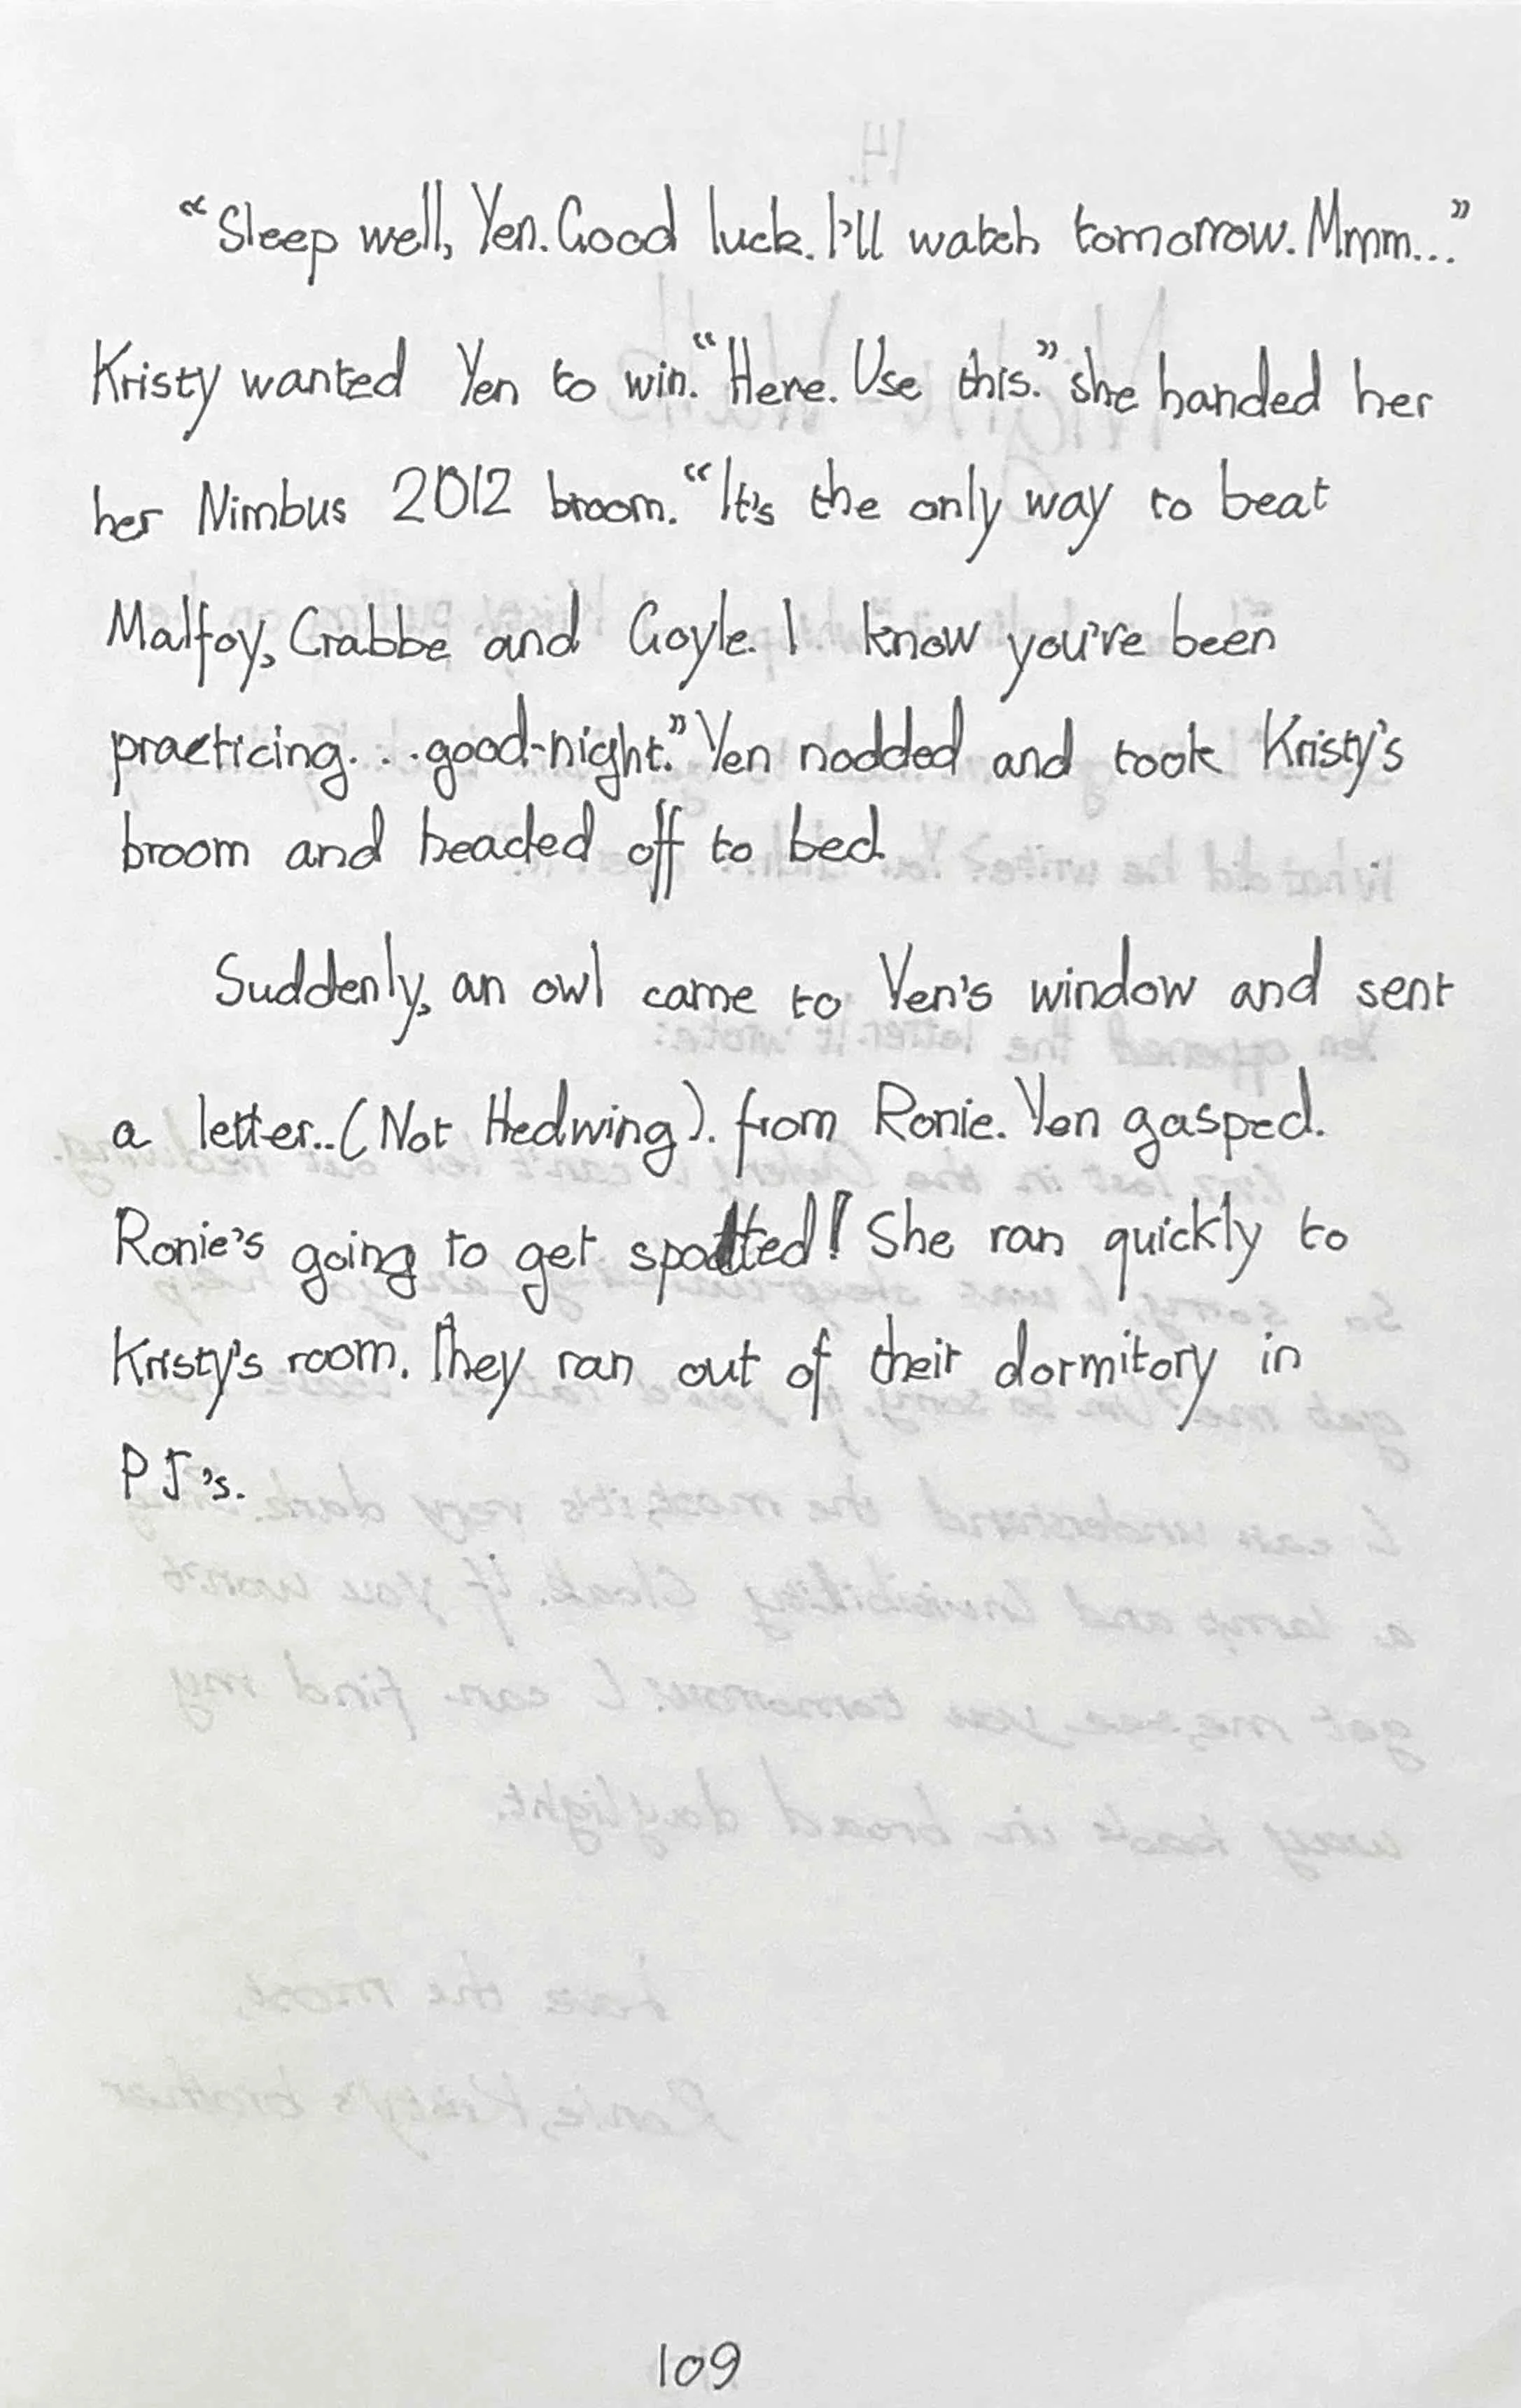 “Sleep well, Yen. Good luck. I'll watch tomorrow. Mmm...”
Kristy wanted Yen to win. “Here. Use this.” she handed her
her Nimbus 2012 broom. “It's the only way to beat
Malfoy, Crabbe and Goyle. I know you've been
practicing. . . good-night.” Yen nodded and took Kristy's
broom and headed off to bed.
Suddenly, an owl came to Yen's window and sent
a letter..(Not Hedwing). from Ronie. Yen gasped.
Ronie's going to get spotted! She ran quickly to
Kristy's room. They ran out of their dormitory in
PJ's.
109